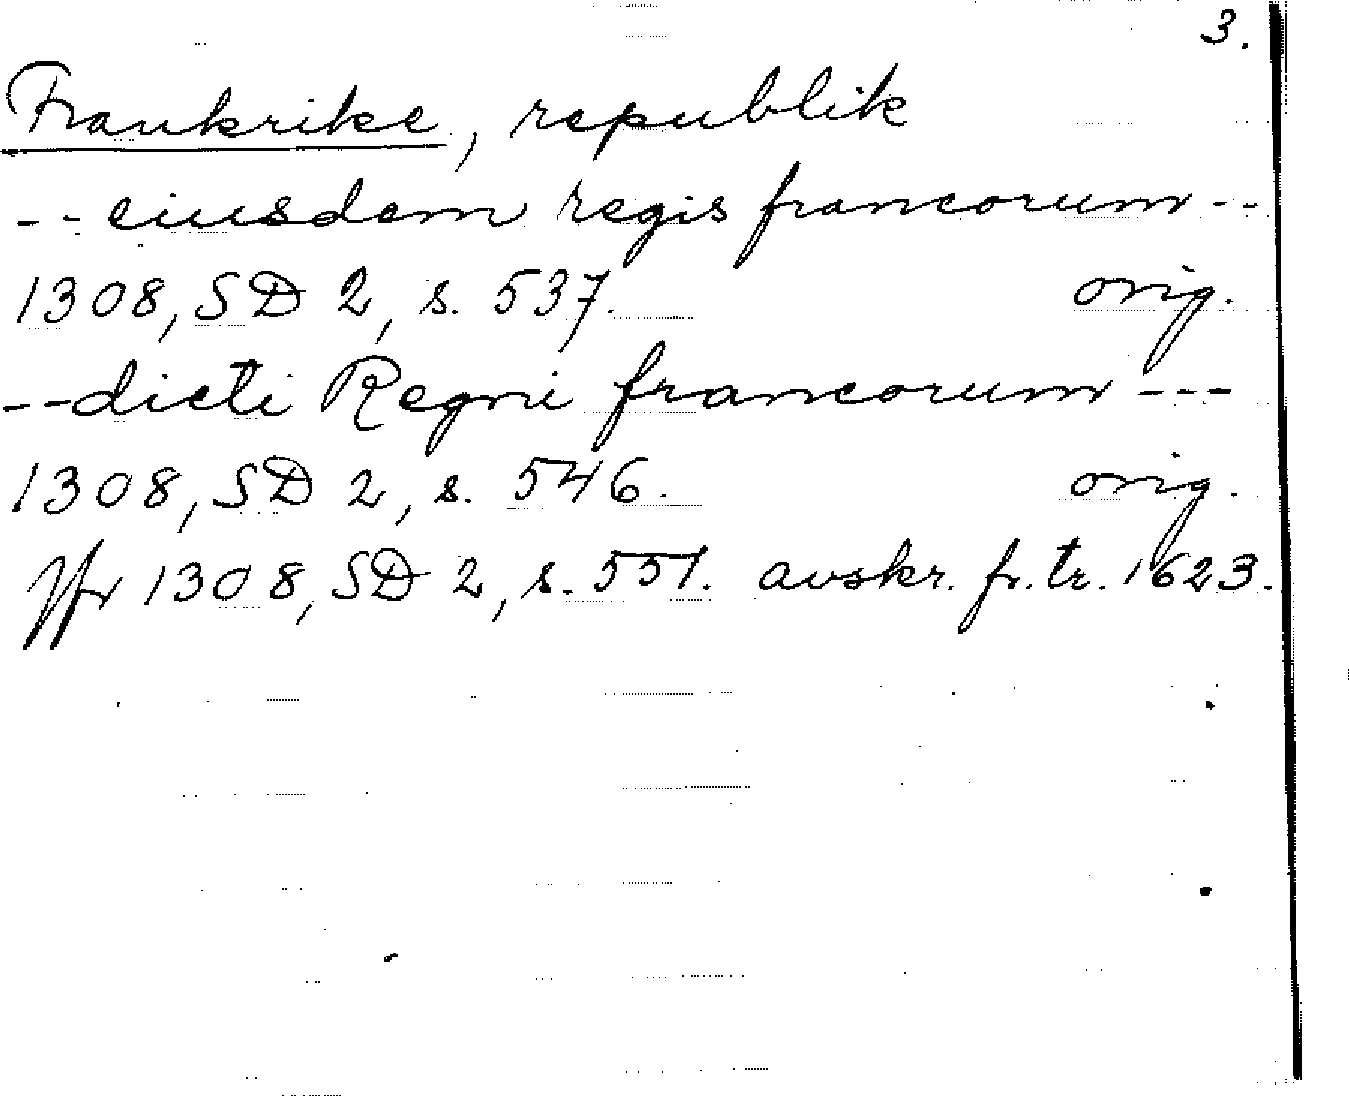 3.
Frankrike, republik
-- eiusdem regis francorum --
1308, SD 2, s. 537. orig.
-- dicti Regni francorum ---
1308, SD 2, s. 546. orig.
Jfr 1308, SD 2, s. 551. avskr. fr. tr. 1623.